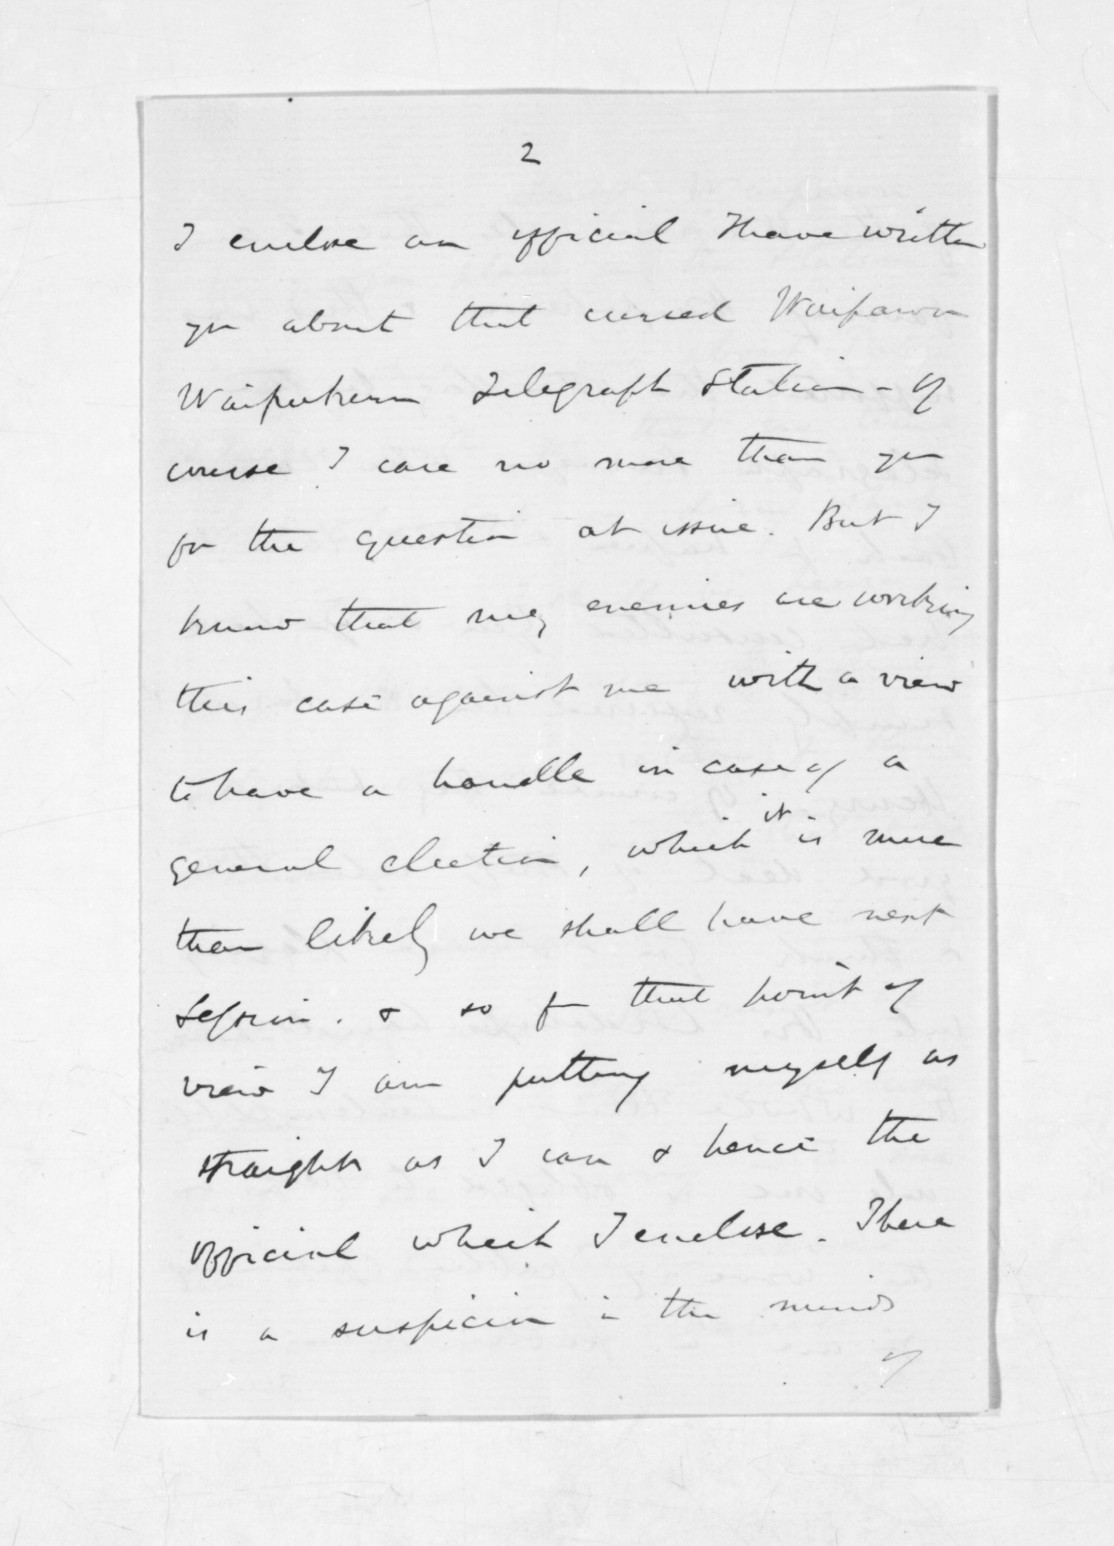 2
I enclose an official I have written
you about that cursed Waipawa
Waipukurau Telegraph Station - of
course I care no more than you
for the question at issue. But I
know that my enemies are working
this case against me with a view
to have a handle in case of a
general election, which it is more
than likely we shall have next
Session. & so from that point of
view I am putting myself as
straight as I can & hence the
official which I enclose. There
is a suspicion in the minds
of